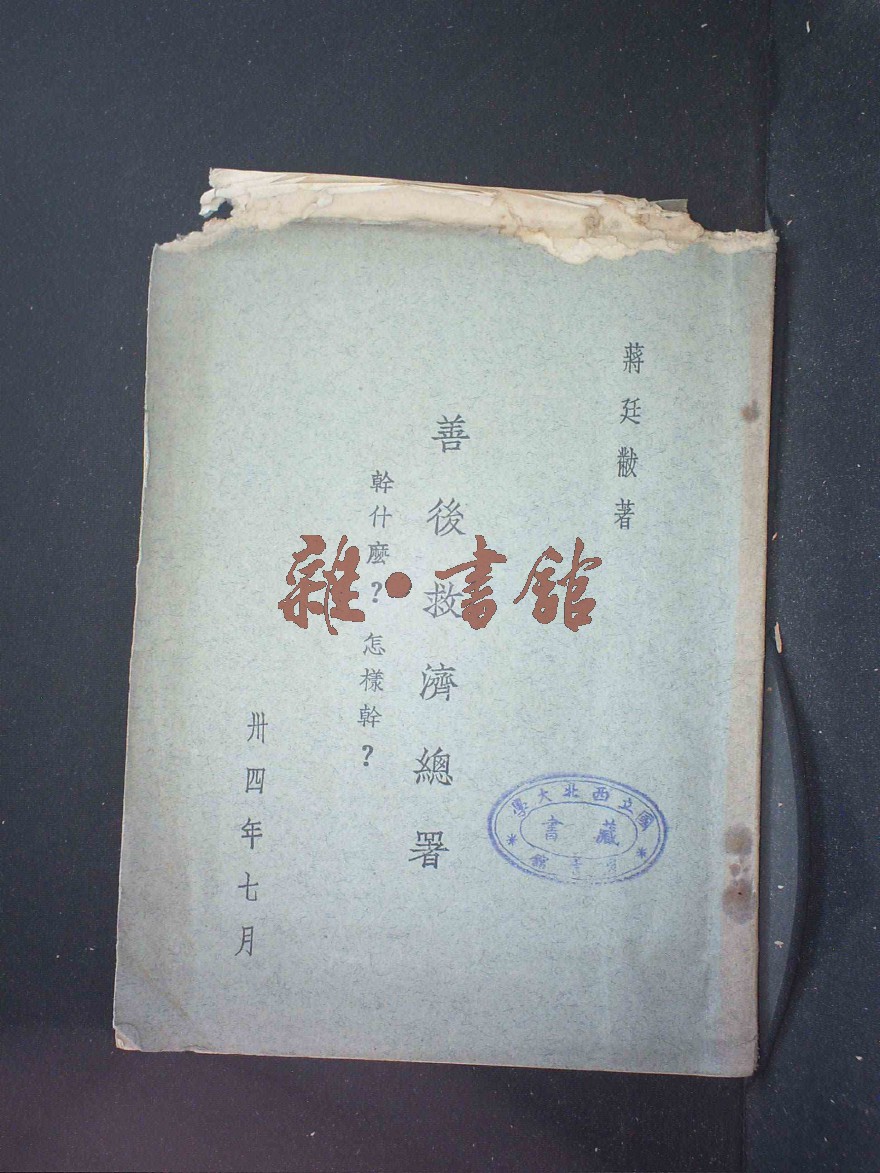 蔣廷黻著
善後救濟總署
幹什麼?怎樣幹?
卅四年七月
雜·書館
國立西北大學
藏書
館